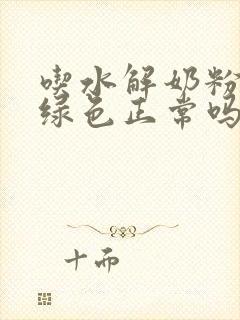 喫水解奶粉
绿色正常吗
十而